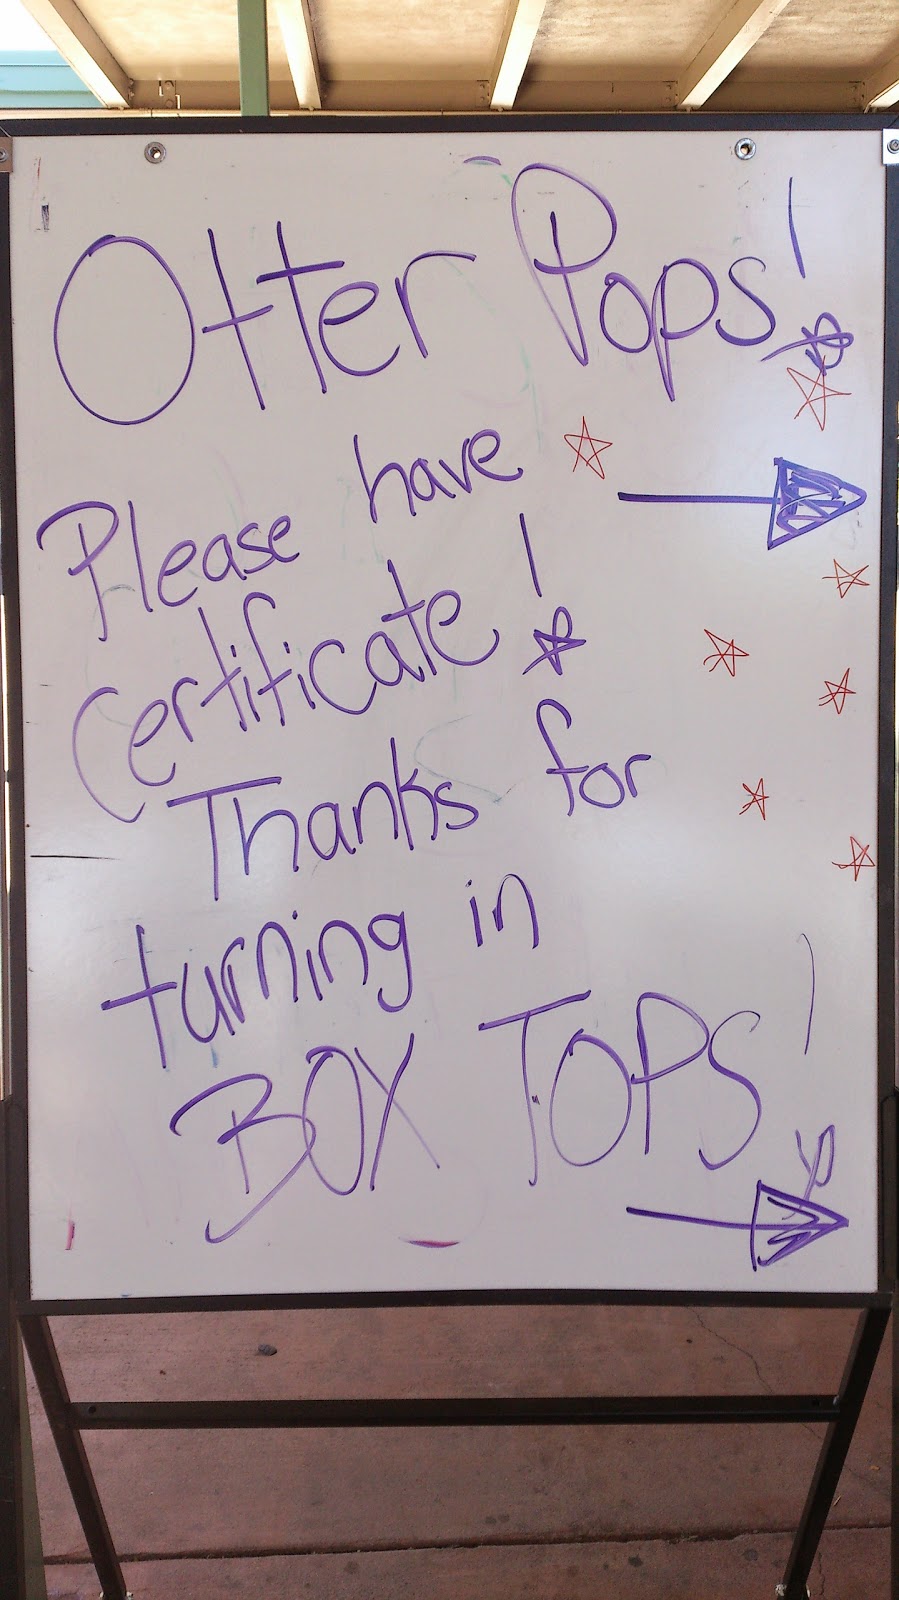 Otter Pops!
Please have
certificate!
Thanks for
turning in
BOX TOPS!